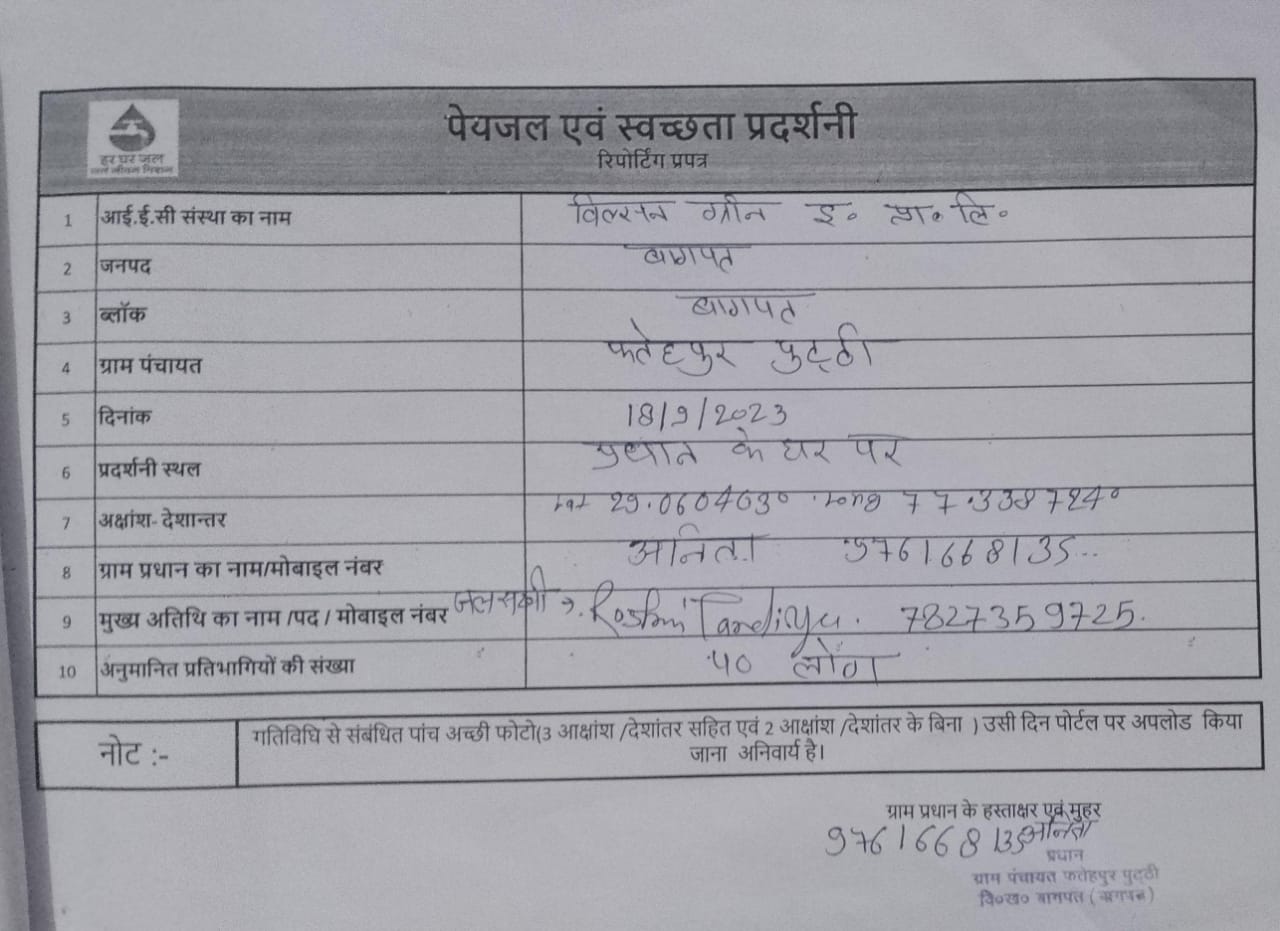 हर घर जल
जल जीवन मिशन
पेयजल एवं स्वच्छता प्रदर्शनी
रिपोर्टिंग प्रपत्र
1 आई.ई.सी संस्था का नाम विल्सन ग्रीन इ० प्रा. लि०
2 जनपद बागपत
3 ब्लॉक बागपत
4 ग्राम पंचायत फतेहपुर पुट्ठी
5 दिनांक 18/9/2023
6 प्रदर्शनी स्थल प्रधान के घर पर
7 अक्षांश- देशान्तर Lat 29.060463° Long 77.338724°
8 ग्राम प्रधान का नाम/मोबाइल नंबर अनिता 9761668135
9 मुख्य अतिथि का नाम /पद / मोबाइल नंबर जल सखी → Roshni 7827359725.
10 अनुमानित प्रतिभागियों की संख्या 40 लोग
नोट :- गतिविधि से संबंधित पांच अच्छी फोटो(3 आक्षांश /देशांतर सहित एवं 2 आक्षांश /देशांतर के बिना ) उसी दिन पोर्टल पर अपलोड किया
जाना अनिवार्य है।
ग्राम प्रधान के हस्ताक्षर एवं मुहर
9761668135 अनिता
प्रधान
ग्राम पंचायत फतेहपुर पुट्ठी
वि०ख० बागपत (बागपत)